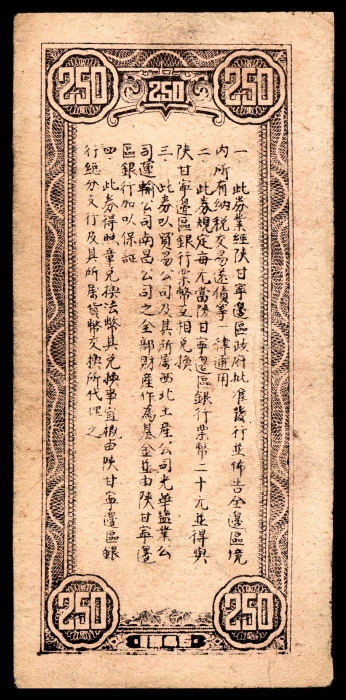 250
250
250
一 此券業經陝甘寧邊區政府批准發行並佈告全邊區境
內所有納稅交易還債等一律通用
二 此券規定每元當陝甘寧邊區銀行票幣二十元並得與
陝甘寧邊區銀行票幣互相兌換
三 此券以貿易公司及其所屬西北土產公司光華鹽業公
司運輸公司南昌公司之全部財產作為基金並由陝甘寧邊
區銀行加以保証
四 此券得照章兌換法幣其兌換事宜概由陝甘寧邊區銀
行總分支行及其所屬貨幣交換所代理之
250
250